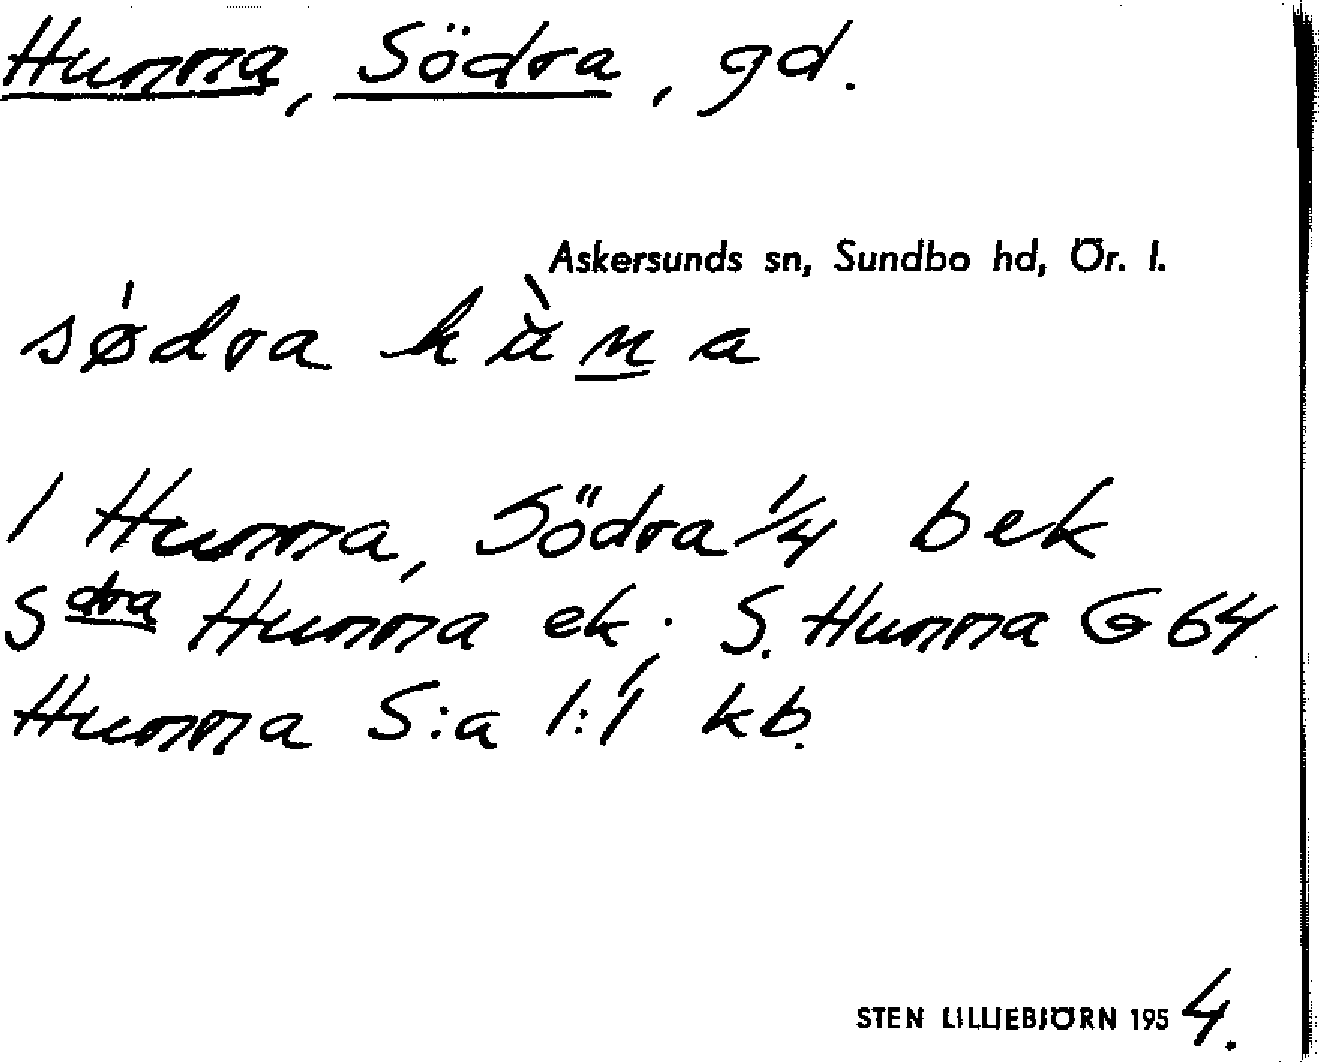 Hunna, Södra, gd.
Askersunds sn, Sundbo hd, Ör. l.
södra
1 Hunna, Södra 1/4 bek
Sdra Hunna ek; S. Hunna G 64
Hunna S:a 1:1 kb.
STEN LILLIEBJÖRN 1954.